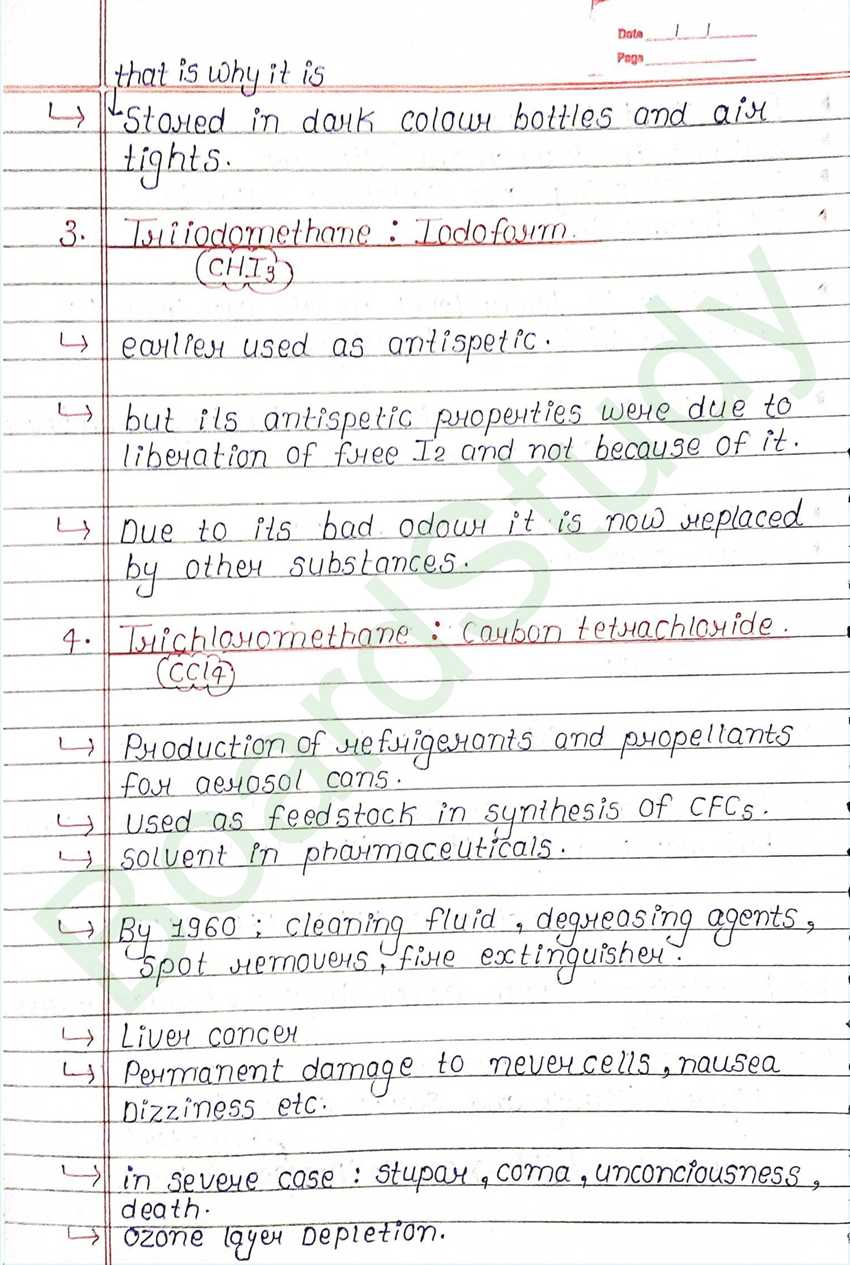 Date / /
Page
that is why it is
↳ ↳ Stored in dark colour bottles and air
tights.
3. Triiodomethane : Iodoform.
(CHI3)
↳ earlier used as antispetic.
↳ but its antispetic properties were due to
liberation of free I2 and not because of it.
↳ Due to its bad odour it is now replaced
by other substances.
4. Trichloromethane : Carbon tetrachloride.
(CCl4)
↳ Production of refrigerants and propellants
for aerosol cans.
↳ used as feedstock in synthesis of CFCs.
↳ solvent in pharmaceuticals.
↳ By 1960 ; cleaning fluid, degreasing agents,
spot removers, fire extinguisher.
↳ Liver concer
↳ Permanent damage to never cells, nausea
Dizziness etc.
↳ in severe case : stupar, coma, unconciousness,
death.
↳ Ozone layer Depletion.
BoardStudy